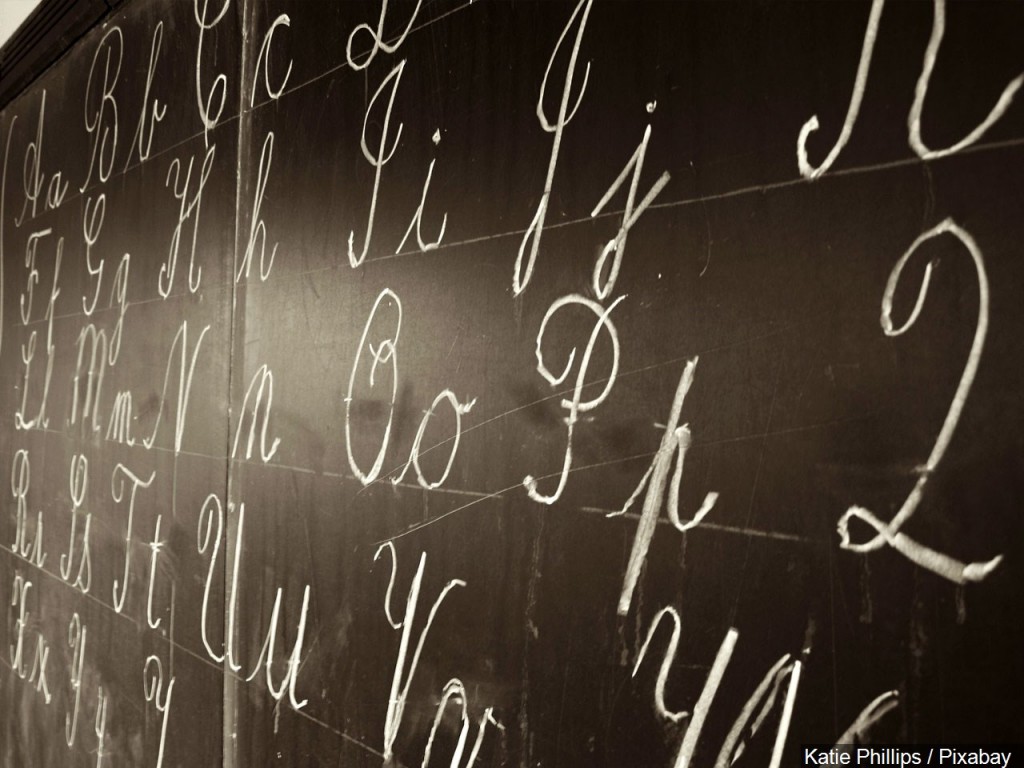 Aa Bb Cc D
Ff Gg Hh Ii Jj K
Ll Mm Nn Oo Pp Q
Rr Ss Tt Uu Vv W
Xx Yy
Katie Phillips / Pixabay